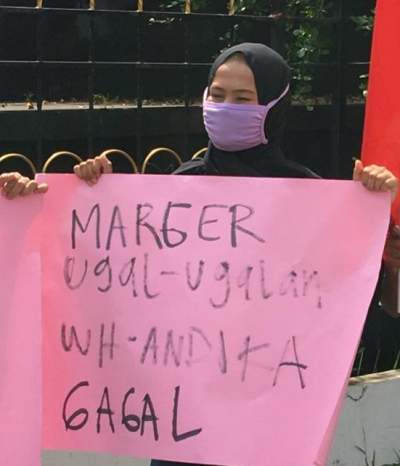 MARGER
ugaL-ugaLan
WH-ANDIKA
GAGAL